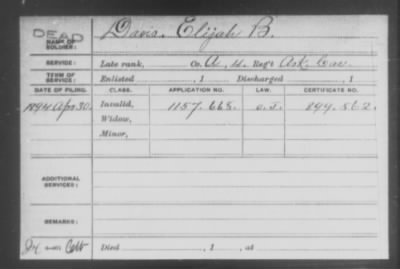 DEAD
NAME OF SOLDIER: Davis, Elijah B.
SERVICE: Late rank, Co. A, 4. Reg't Ark. Cav.
TERM OF SERVICE: Enlisted , 1 Discharged , 1
DATE OF FILING. CLASS. APPLICATION NO. LAW. CERTIFICATE NO.
1894 Apr. 30. Invalid, 1157.668. 849.562.
Widow,
Minor,
ADDITIONAL SERVICES:
REMARKS:
Died , 1 , at